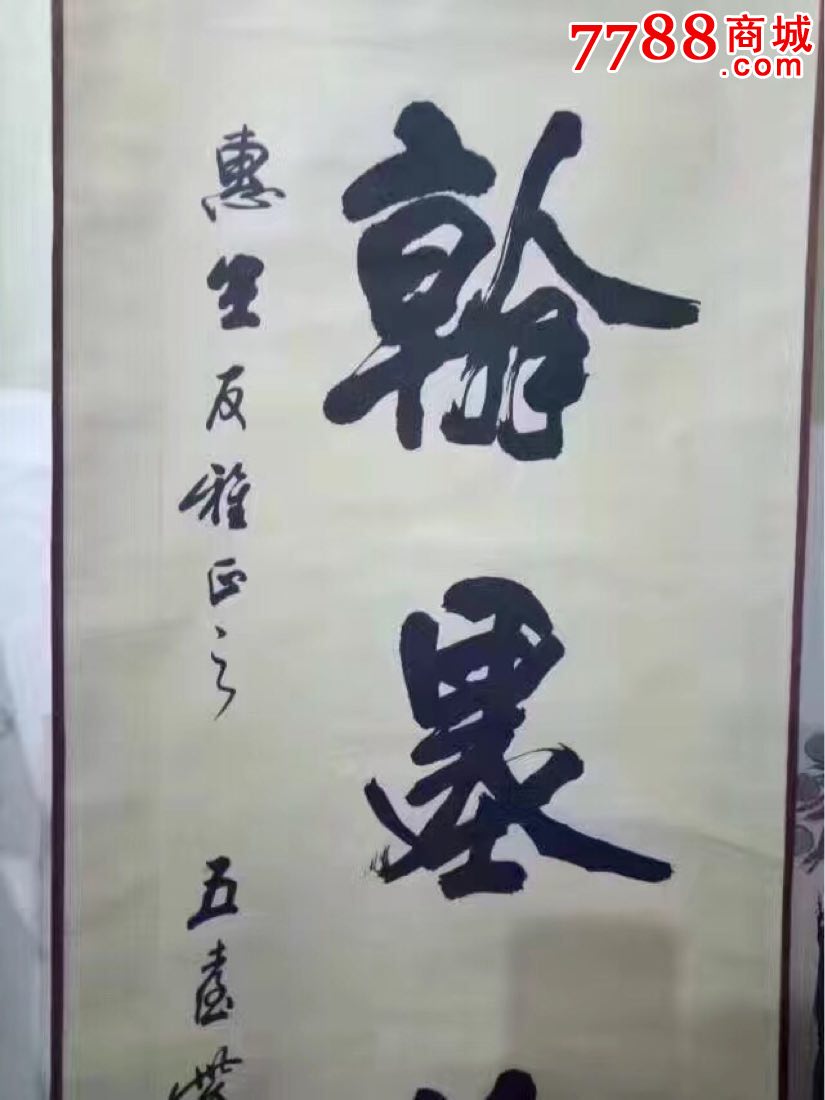 7788商城
.com
翰墨
惠生友雅正之
五臺